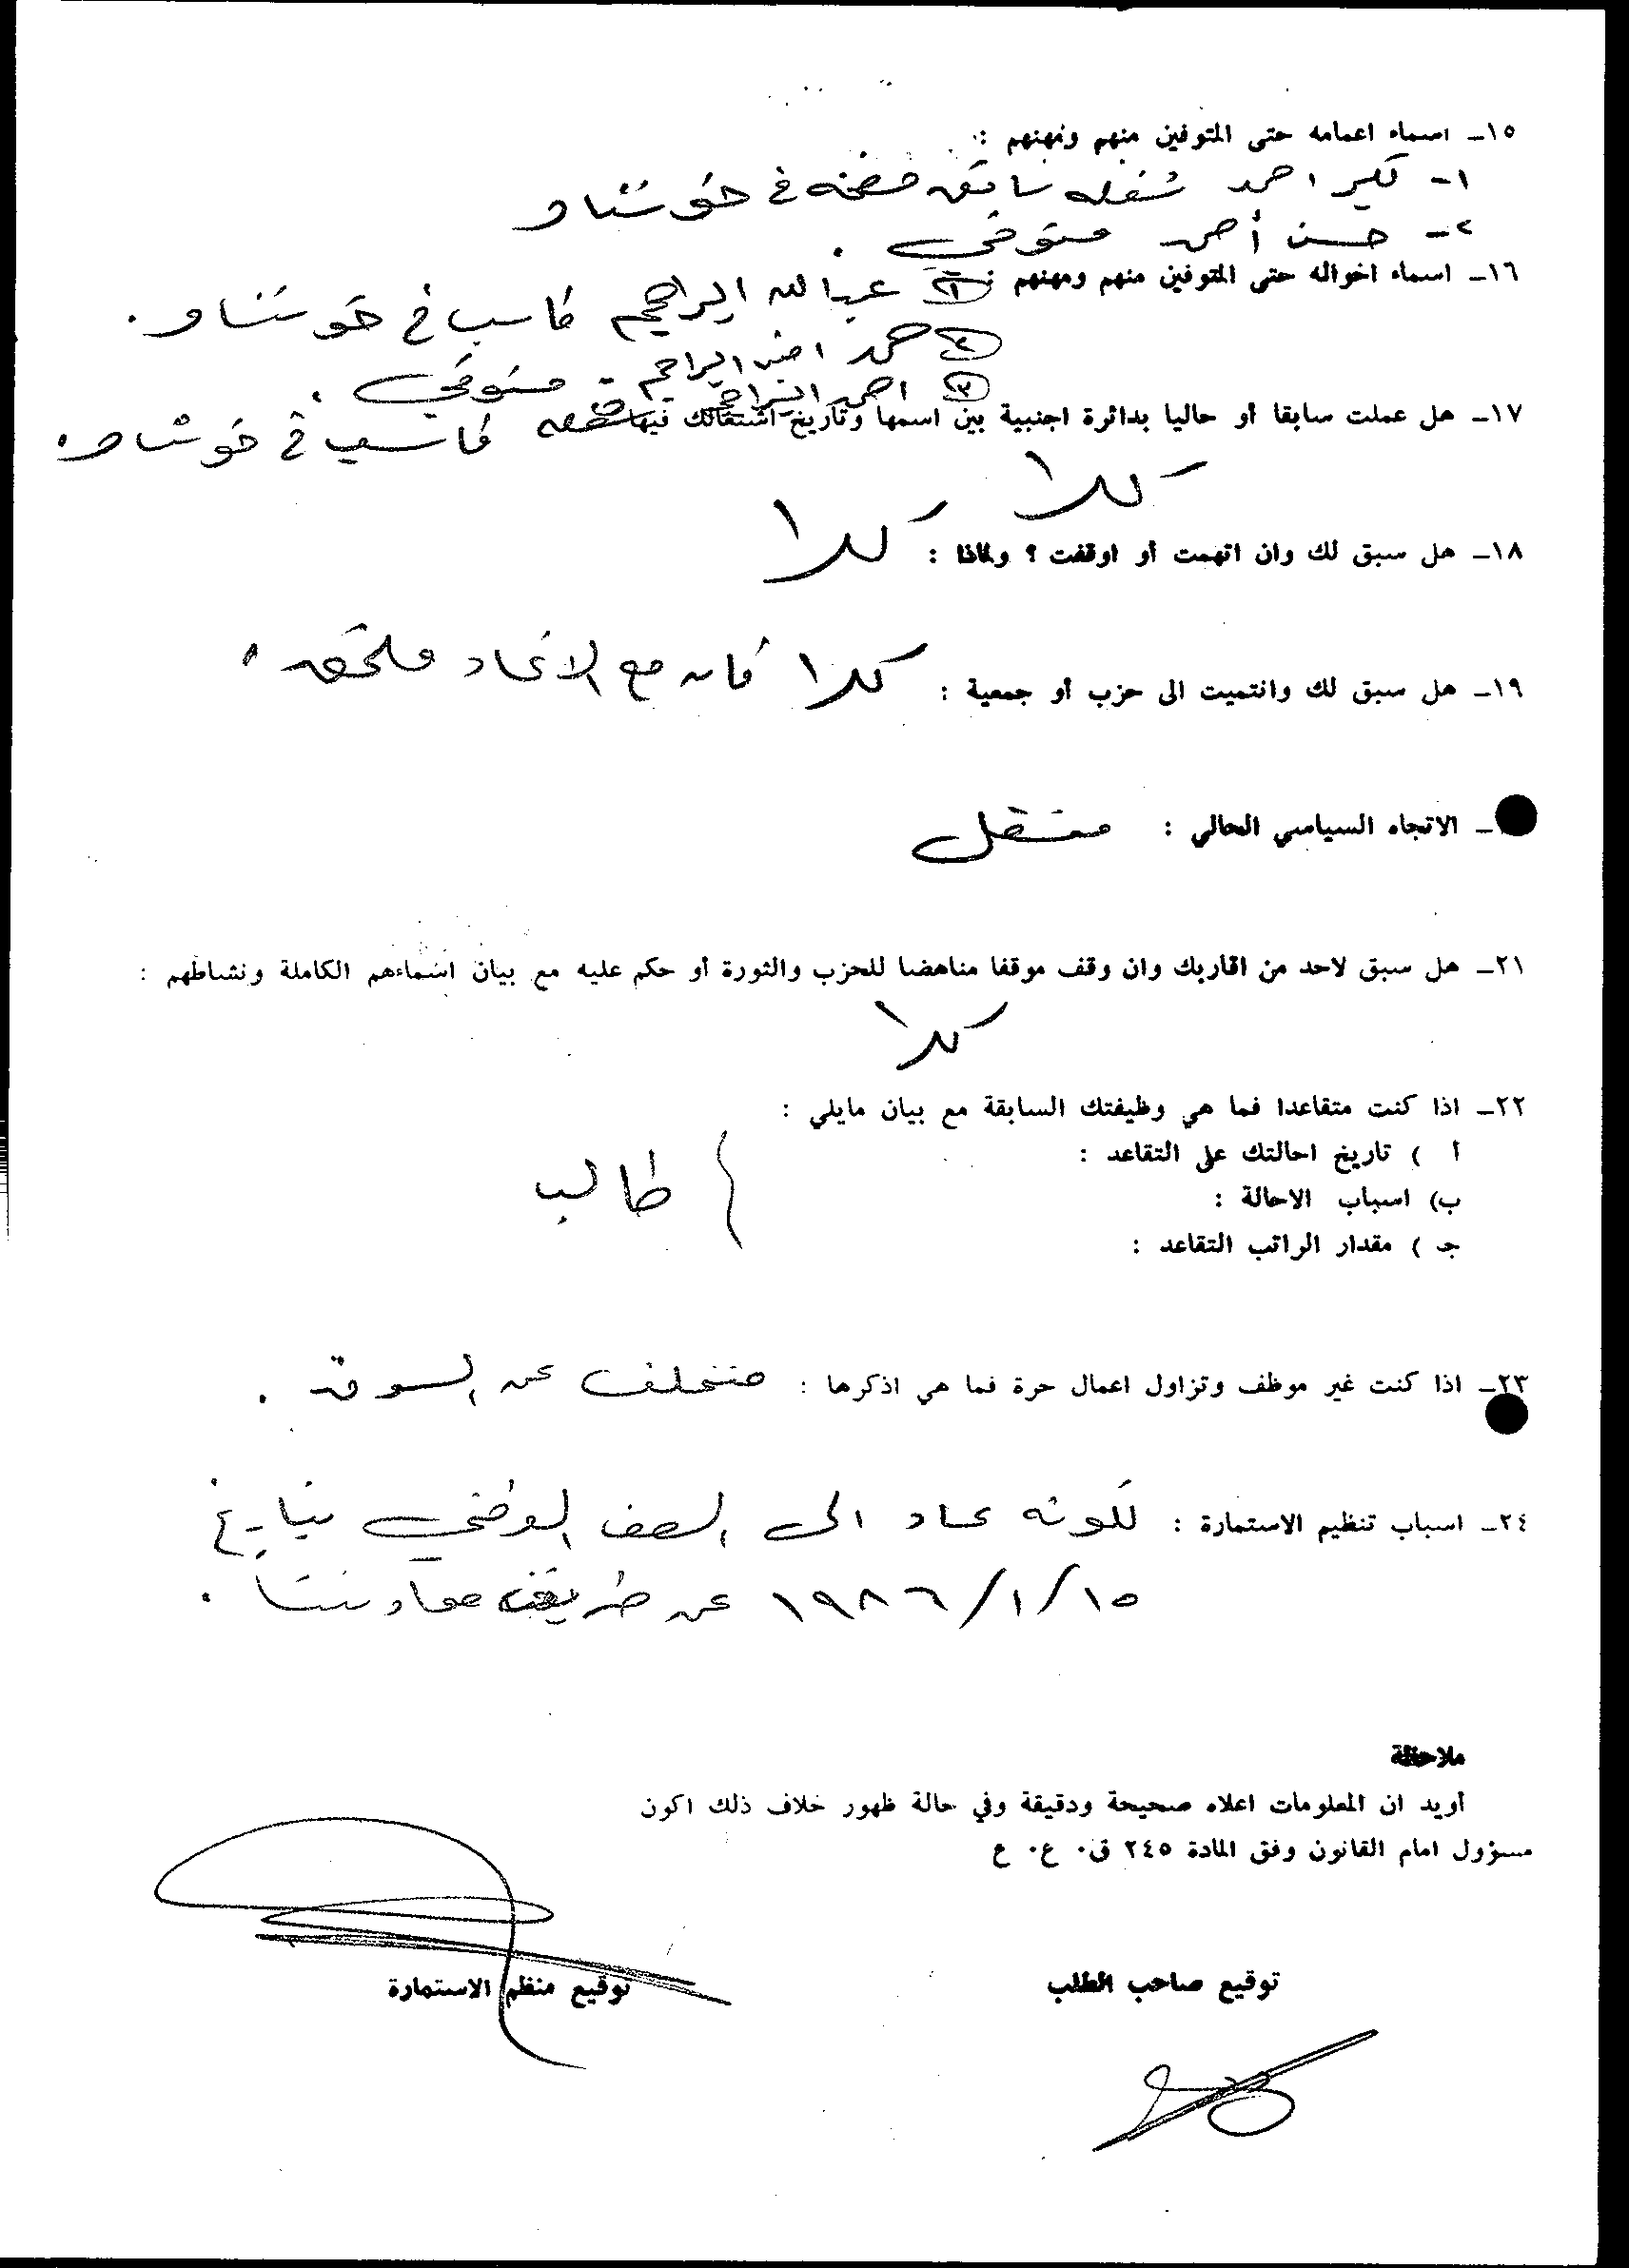 ١٥ـ اسماء اعمامه حتى المتوفين منهم ومهنهم :
١- بكير احمد شغله سائق في خوشناو
٢- حسن أحمد متوفي .
١٦ـ اسماء اخواله حتى المتوفين منهم ومهنهم : ١ عبدالله ابراهيم كاسب في خوشناو .
٢ حمد ابراهيم - متوفي .
٣ احمد ابراهيم
١٧ـ هل عملت سابقا أو حاليا بدائرة اجنبية بين اسمها وتاريخ اشتغالك فيها كاسب في خوشناو .
كلا
١٨ـ هل سبق لك وان اتهمت أو اوقفت ؟ ولماذا : كلا
١٩ـ هل سبق لك وانتميت الى حزب أو جمعية : كلا كان مع الاتحاد .
ـ الاتجاه السياسي الحالي : مستقل
٢١ـ هل سبق لاحد من اقاربك وان وقف موقفا مناهضا للحزب والثورة أو حكم عليه مع بيان اسماءهم الكاملة ونشاطهم :
كلا
٢٢ـ اذا كنت متقاعدا فما هي وظيفتك السابقة مع بيان مايلي :
أ ) تاريخ احالتك على التقاعد :
ب) اسباب الاحالة : طالب
جـ ) مقدار الراتب التقاعد :
٢٣ـ اذا كنت غير موظف وتزاول اعمال حرة فما هي اذكرها : متخلف عن السوق .
٢٤ـ اسباب تنظيم الاستمارة : لكونه عاد الى الصف الوطني بتاريخ
١٩٨٦/١/١٥ عن طريق معاونتنا .
ملاحظة
أويد ان المعلومات اعلاه صحيحة ودقيقة وفي حالة ظهور خلاف ذلك اكون
مسؤول امام القانون وفق المادة ٢٤٥ ق٠ ع٠ ع
توقيع صاحب الطلب توقيع منظم الاستمارة